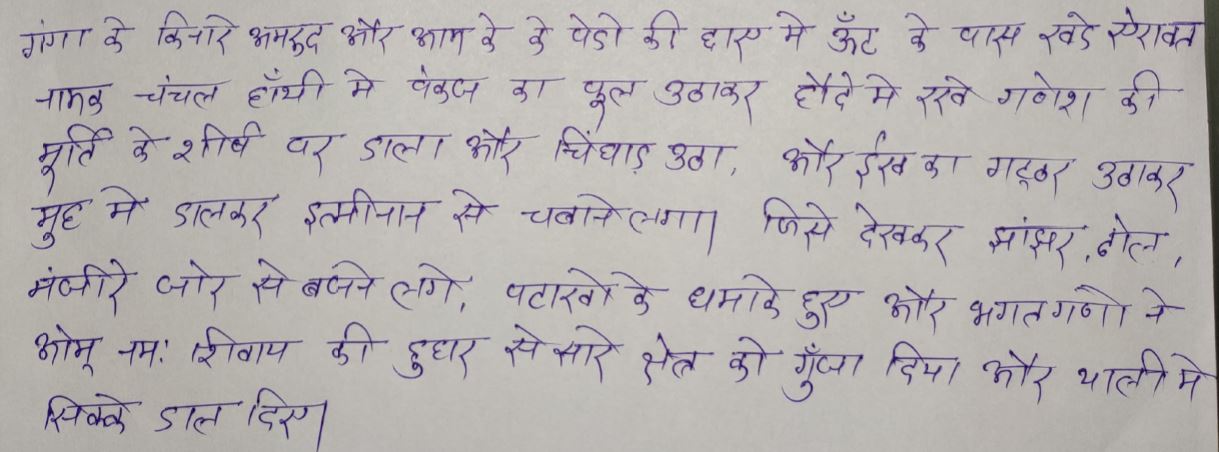 गंगा के किनारे अमरुद और आम के के पेडो की छाए मे ऊँट के पास खडे ऐरावत
नामक चंचल हाँथी मे पंकज का फूल उठाकर हौदे मे रखे गणेश की
मूर्ति के शीर्ष पर डाला और चिंघाड़ उठा, और ईख का गट्ठर उठाकर
मुह मे डालकर इत्मीनान से चबाने लगा। जिसे देखकर झांझर, ढोल,
मंजीरे जोर से बजने लगे, पटाखो के धमाके हुए और भगतगणो ने
ओम् नमः शिवाय की हुघर से सारे क्षेत्र को गूँजा दिया और थाली मे
सिक्के डाल दिए।